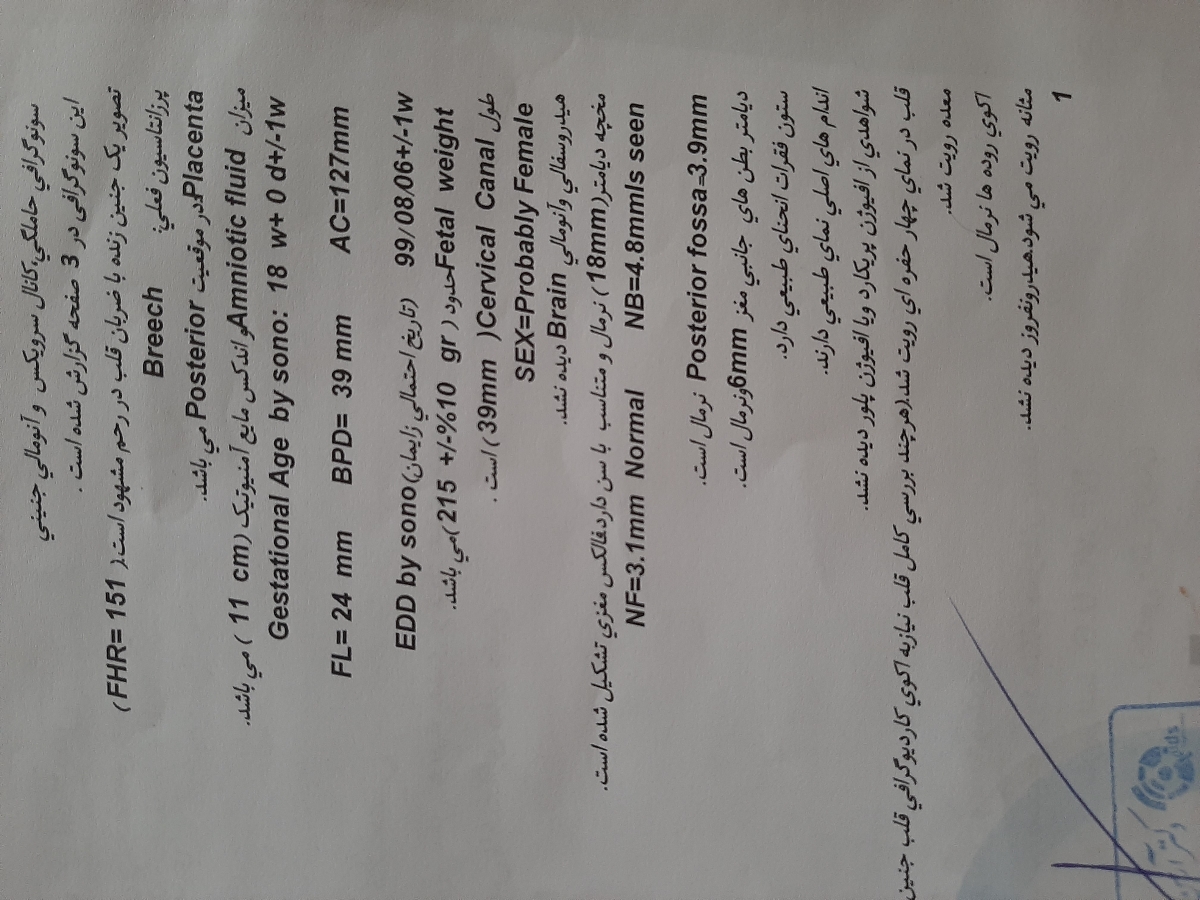 سونوگرافي حاملگي،کانال سرويکس و آنومالي جنيني
اين سونوگرافي در 3 صفحه گزارش شده است .
تصوير يک جنين زنده با ضربان قلب در رحم مشهود است.( FHR= 151)
پرزانتاسيون فعلي: Breech
Placenta در موقعيت Posterior مي باشد.
ميزان Amniotic fluid واندکس مايع آمنيوتيک (11 cm ) مي باشد.
Gestational Age by sono: 18 w+ 0 d+/-1w
FL= 24 mm BPD= 39 mm AC=127mm
EDD by sono(تاريخ احتمالي زايمان) 99/08/06+/-1w
Fetal weight حدود ( 215 +/-%10 gr )مي باشد.
طول Cervical Canal( 39mm ) است .
SEX=Probably Female
هيدروسفالي وآنومالي Brain ديده نشد.
مخچه ديامتر(18mm) نرمال و متناسب با سن دارد.فالکس مغزي تشکيل شده است.
NF=3.1mm Normal NB=4.8mmIs seen
Posterior fossa=3.9mm نرمال است.
ديامتر بطن هاي جانبي مغز 6mmونرمال است.
ستون فقرات انحناي طبيعي دارد.
اندام هاي اصلي نماي طبيعي دارند.
شواهدي از افيوژن پريکارد ويا افيوژن پلور ديده نشد.
قلب در نماي چهار حفره اي رويت شد.(هرچند بررسي کامل قلب نيازبه اکوي کارديوگرافي قلب جنين
معده رويت شد.
اکوي روده ها نرمال است.
مثانه رويت مي شود.هيدرونفروز ديده نشد.
1